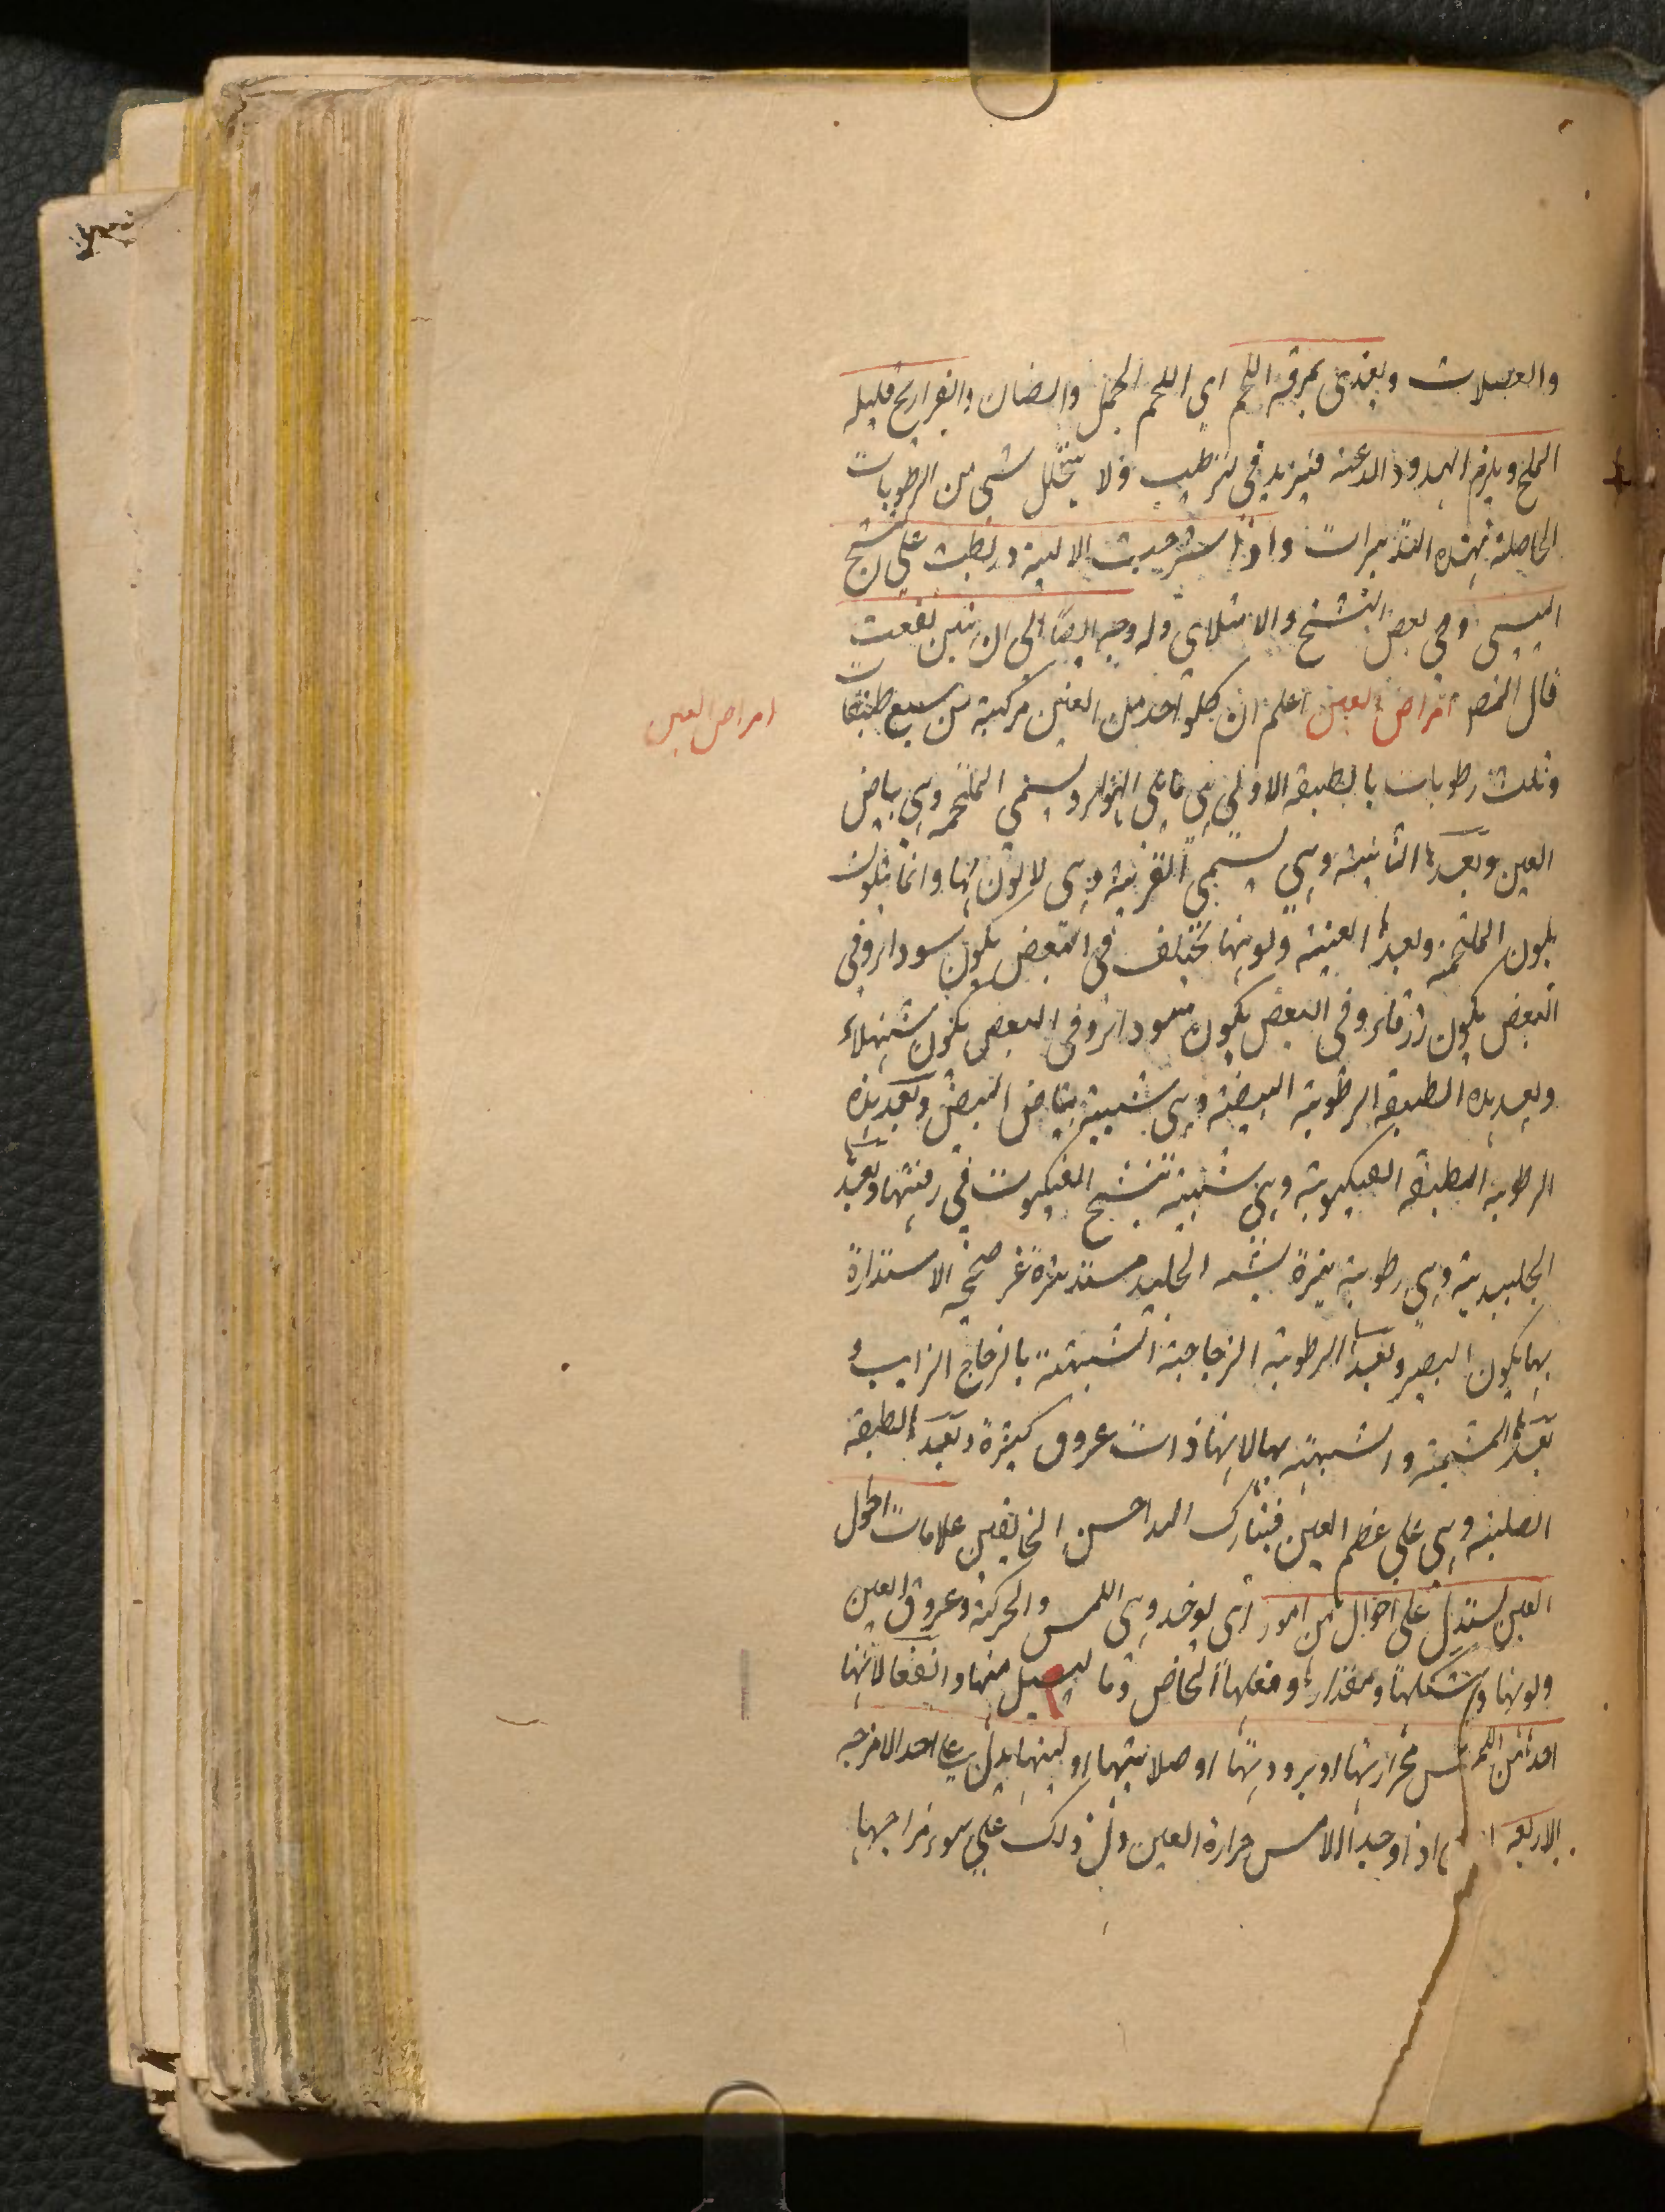 والعضلات ويغذى بمرقة اللحم اى اللحم الجمل والضان والفراريج قليله
الملح ويلزم الهدو والدعة فيزيد فى ترطيب ولا يتحلل شى من الرطوبات
الحاصلة بهذه التدبيرات واذا شرحت الالية وربطت على التشنج
اليبسى وفى بعض التشنج والامتلاى وله وجه ايضا الى ان ينتن نفعت
قال المص امراض العين اعلم ان كل واحد من العين مركبة من سبع طبقات
امراض العين
وثلث رطوبات بالطبقة الاولى هى ما يلى الهواء ويسمى الملتحمة وهى بياض
العين وبعدها الثانية وهى يسمى القرنية وهى لا لون لها وانما يتلون
بلون الملتحمة وبعدها العنبية ولونها مختلف فى البعض يكون سوداء وفى
البعض يكون زرقاء وفى البعض يكون سوداء وفى البعض يكون شهلاء
وبعد هذه الطبقة الرطوبة البيضية وهى شبيهة ببياض البيض وبعد هذه
الرطوبة الطبقة العنكبوتية وهى شبيهة بنسج العنكبوت فى رقتها وبعدها
الجليدية وهى رطوبة نيرة يشبه الجليد مستديرة غر صحيحة الاستدارة
بها يكون البصر وبعدها الرطوبة الزجاجية الشبيهة بالزجاج الذايب و
بعدها المشيمة والشبيهة بها لانها ذات عروق كثيرة وبعدها الطبقة
الصلبة وهى على عظم العين فتبارك الله احسن الخالقين علامات احول
العين يستدل على احوال من امور اى يوخذ وهى اللمس والحركة وعروق العين
ولونها وشكلها ومقدارها وفعلها الخاص وما يسيل منها وانفعالاتها
اما من اللمس فحرارتها او برودتها او صلابتها او لينها يدل على احد الامزجه
الاربعة اذا وجد اللامس حرارة العين دل ذلك على سوء مزاجها